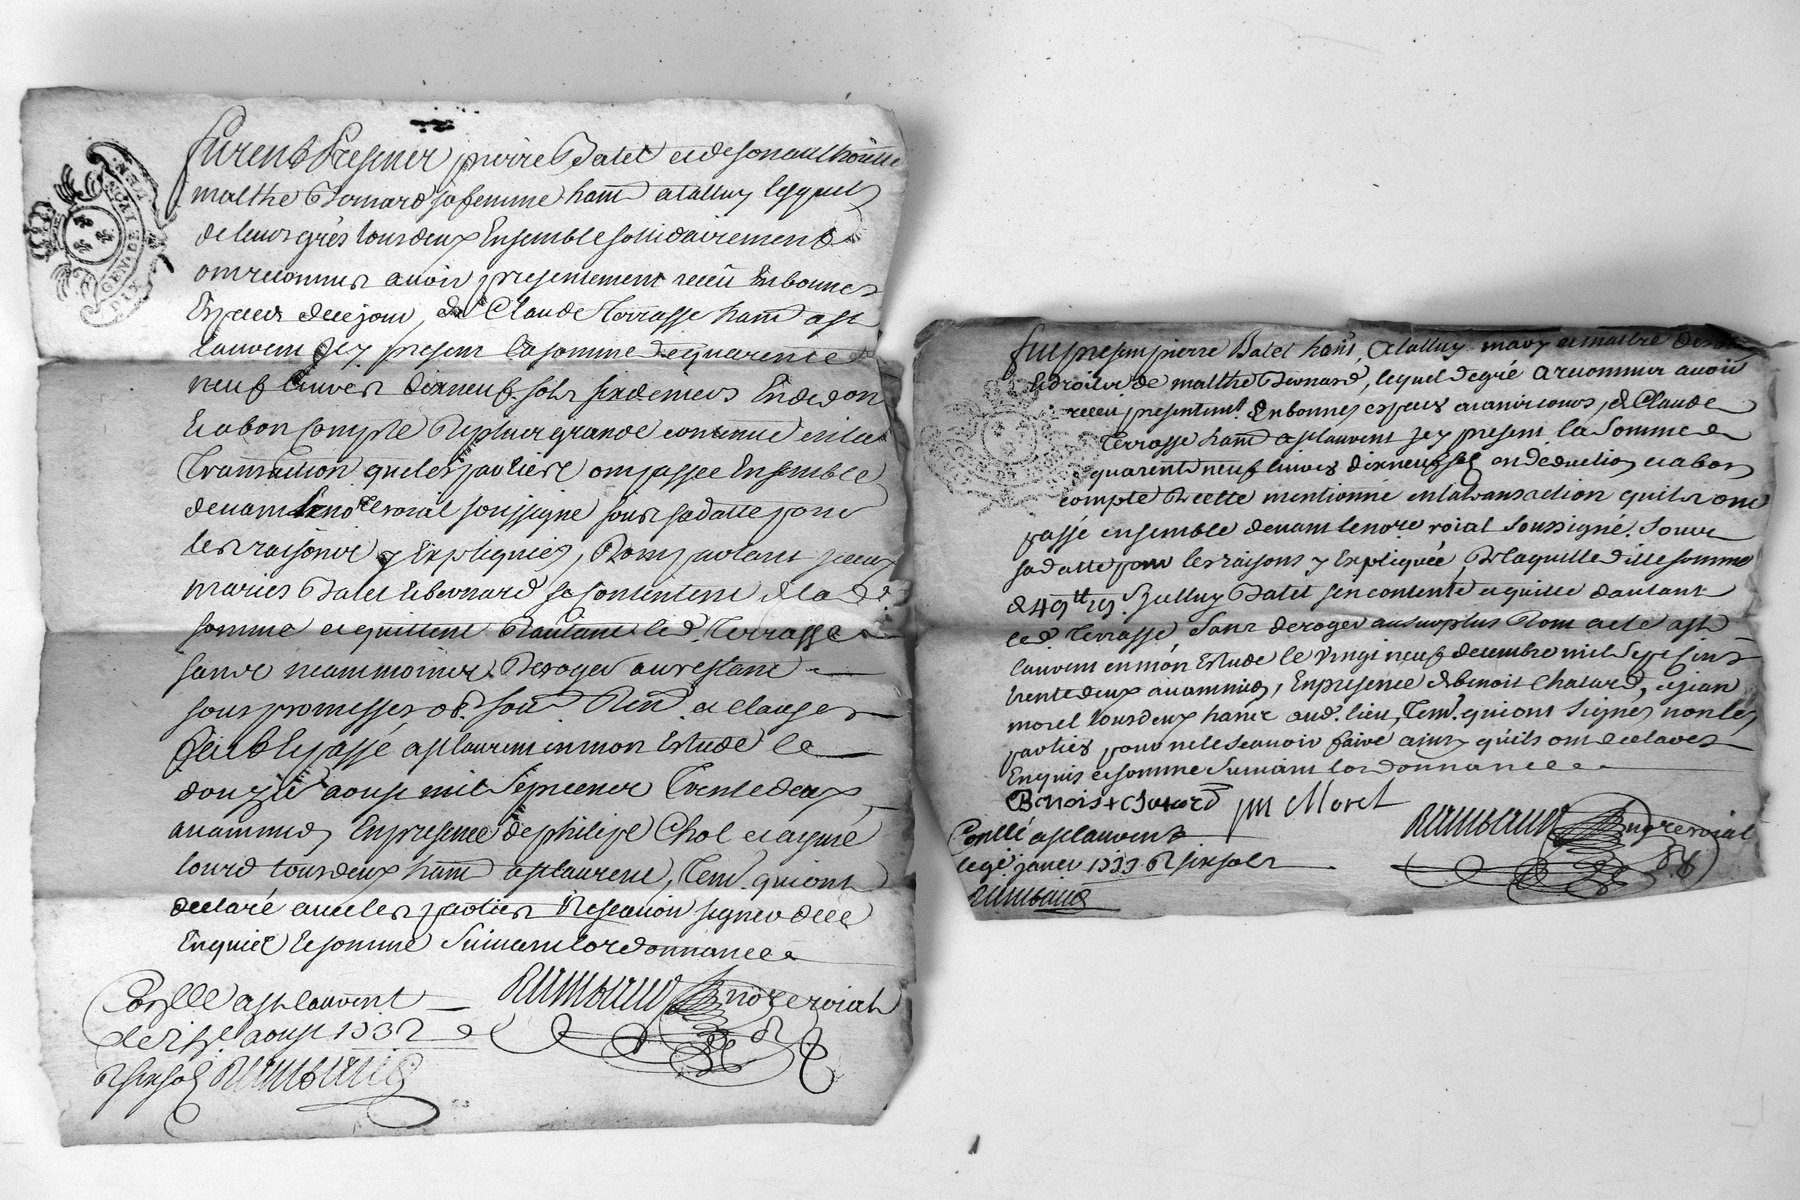 GEN. DE LYON
DIX DEN
furent presens pierre Batet et de son authorite
malthe Bernard sa femme hant a talluy lesquels
de leurs grés tous deux Ensemble sollidairement
ont reconnus avoir presentement receu En bonnes
Especes de ce jour, de Claude Terrasse hant a st
Laurent icy present la somme de quarente
neuf Livres dixneuf sols six deniers En deduon
Et a bon Compte De plus grande contenue en la
Transaction que les parties ont passée Ensemble
devant Le nore roial soussigné sous sa datte pour
les raisons y Expliquées, Dont partant iceux
mariés Batet et bernard se Contentent de lad.
somme et quittent D'autant led. Terrasse
sans neanmoins Deroger au restant
sous promesses ob. soun. Ren. et clauses
fait et passé a st laurent en mon Estude le
douzie aoust mil sept cent Trente deux
avant midy En presence de philipe Chol et aymé
lourd tous deux hant a st laurent, Tem. qui ont
declaré avec les parties Ne scavoir signer de ce
Enquis et sommé suivant l'ordonnance
Conllé a st Laurent
le aoust 1732
R six sols Raimbaud
Raimbaud nore roial
fut present pierre Batet hant, a talluy mary et maitre des
Et droits de malthe Bernard, lequel de gré a reconnu avoir
receu presentent En bonnes especes aiant cours, de Claude
Terrasse hant a st laurent icy present la somme de
quarente neuf livres dixneuf sols en deduction et a bon
compte De cette mentionné en la transaction qu'ils ont
passé ensemble devant le nore roial soussigné sous
sa datte pour les raisons y Expliquée De laquelle dite somme
de 49lt 19s Ledit Batet s'en contente et quitte d'autant
led. Terrasse sans deroger au surplus Dont acte a st
Laurent en mon Estude le vingt neuf decembre mil sept cent
trente deux avant midy, En presence de benoit Chatard, et jean
morel tous deux hants aud. lieu, Tem. qui ont signés non les
parties pour ne le scavoir faire ainsy qu'ils ont declarés
Enquis et sommé suivant l'ordonnance
Benoist Chatard jm Morel
Raimbaud nore roial
Conllé a st laurent
le 9e janver 1733 R six sols
Raimbaud